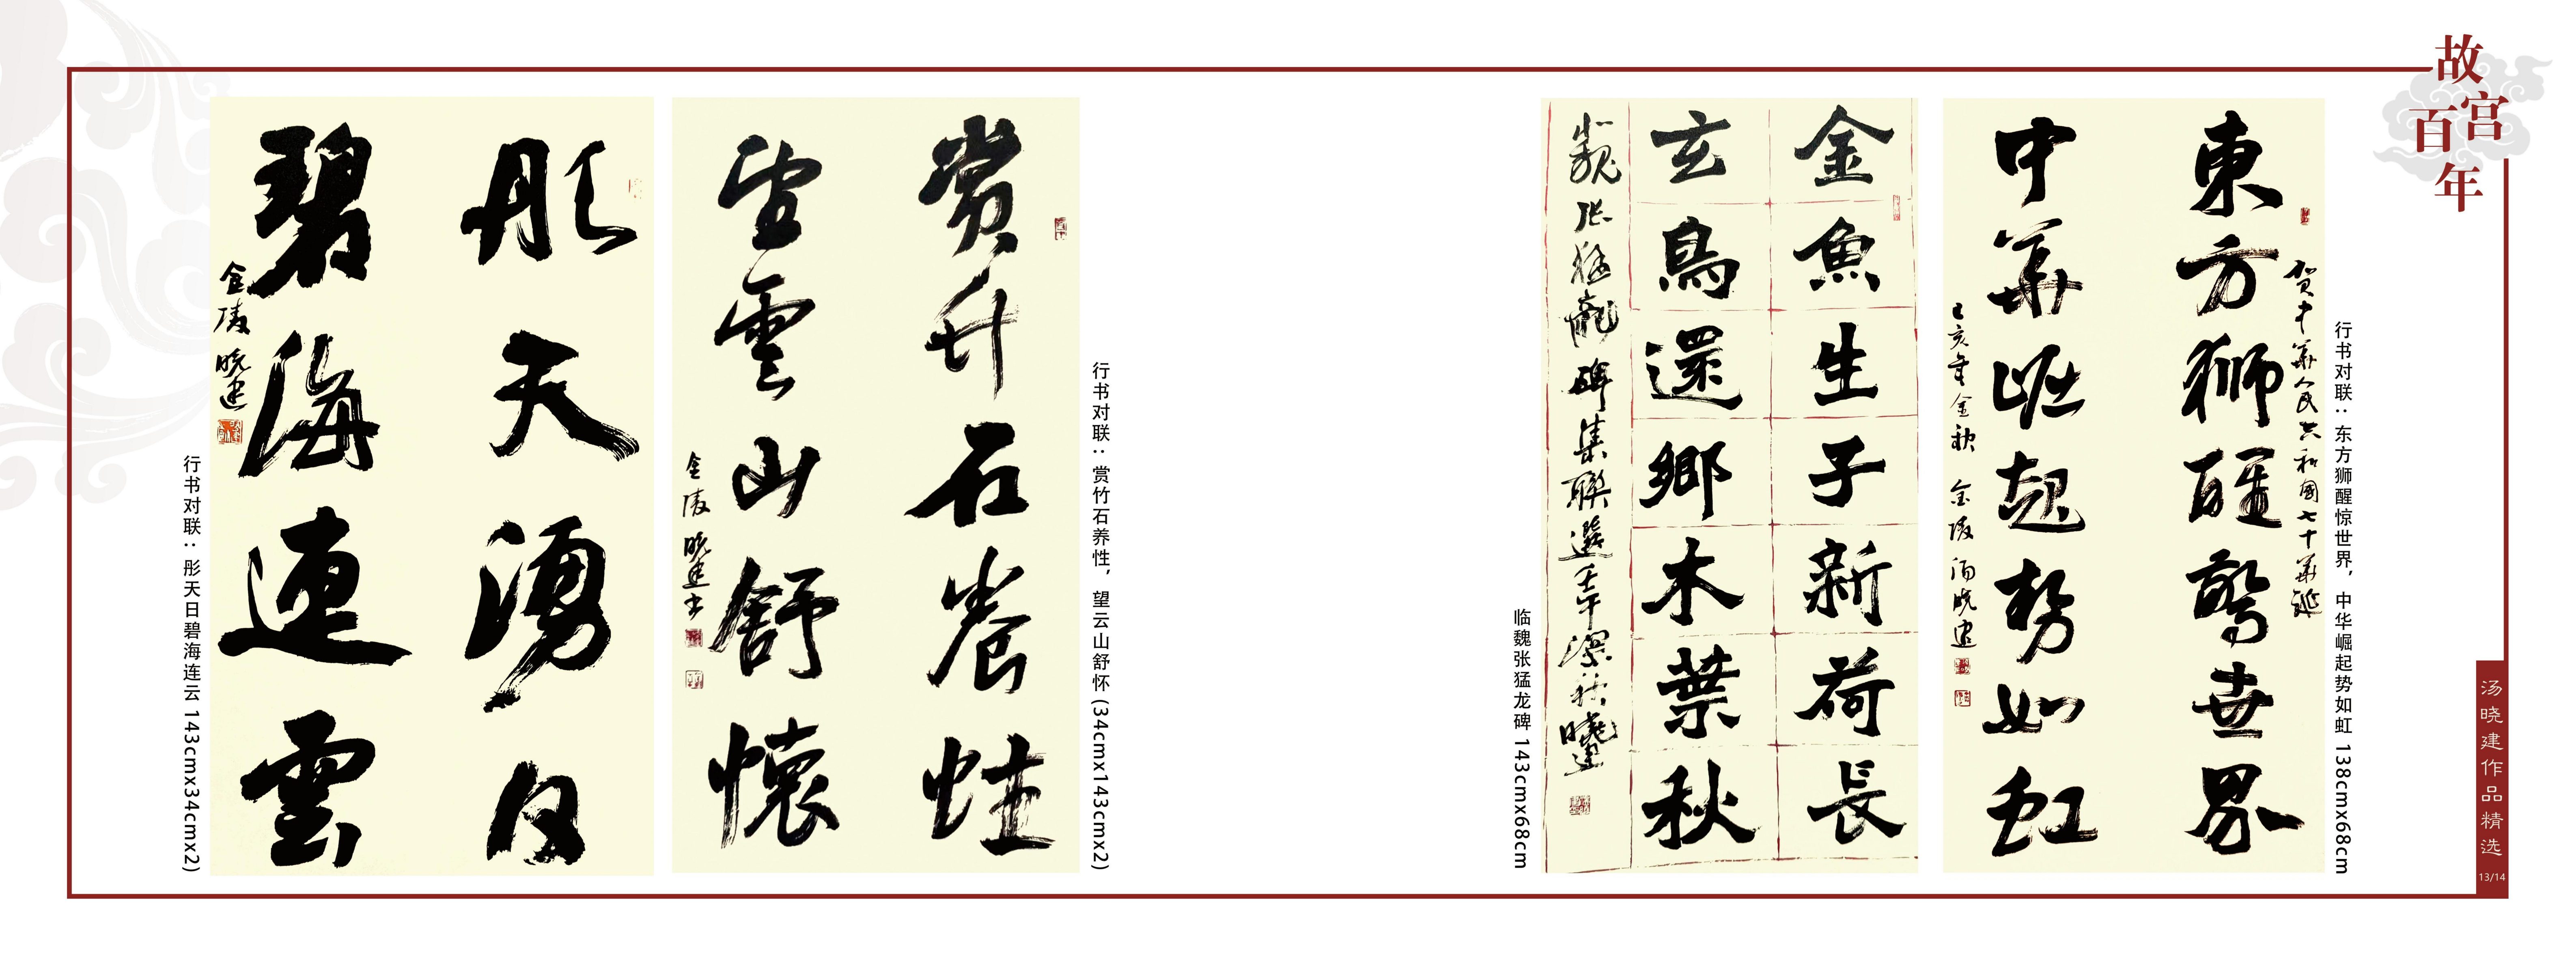 故宫百年
贺中华人民共和国七十华诞
東方獅醒驚世界
中華崛起势如虹
己亥年金秋 金陵 汤晓建
行书对联：东方狮醒惊世界，中华崛起势如虹 138cmx68cm
金魚生子新荷長
玄鳥還鄉木葉秋
北魏张猛龍碑集聯選壬午深秋曉建
临魏张猛龙碑 143cmx68cm
赏竹石養性
望雲山舒懷
金陵 晓建书
行书对联：赏竹石养性，望云山舒怀 (34cmx143cmx2)
彤天湧日
碧海連雲
金陵 晓建
行书对联：彤天日碧海连云 143cmx34cmx2)
汤晓建作品精选
13/14